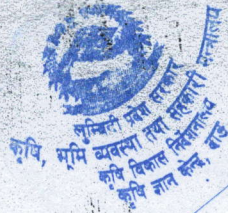 लुम्बिनी प्रदेश सरकार
कृषि, भूमि व्यवस्था तथा सहकारी मन्त्रालय
कृषि विकास निर्देशनालय
कृषि ज्ञान केन्द्र,